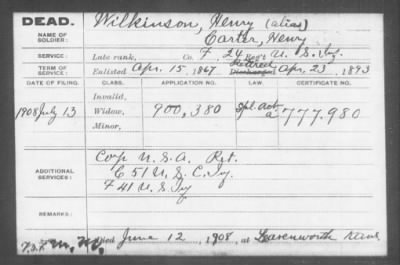 DEAD. Wilkinson, Henry (alias)
NAME OF SOLDIER: Carter, Henry
SERVICE: Late rank, Co. F, 24 Reg't U. S. Inf.
TERM OF SERVICE: Enlisted Apr. 15, 1867 Retired Discharged Apr. 23, 1893
DATE OF FILING. CLASS. APPLICATION NO. LAW. CERTIFICATE NO.
Invalid,
1908 July 13 Widow, 900,380 Spl. Act a 777.980
Minor,
Corp U.S.A. Ret.
ADDITIONAL SERVICES: C 51 U.S.C.Iy.
F 41 U.S. Iy
REMARKS:
Died June 12, 1908, at Leavenworth Kans